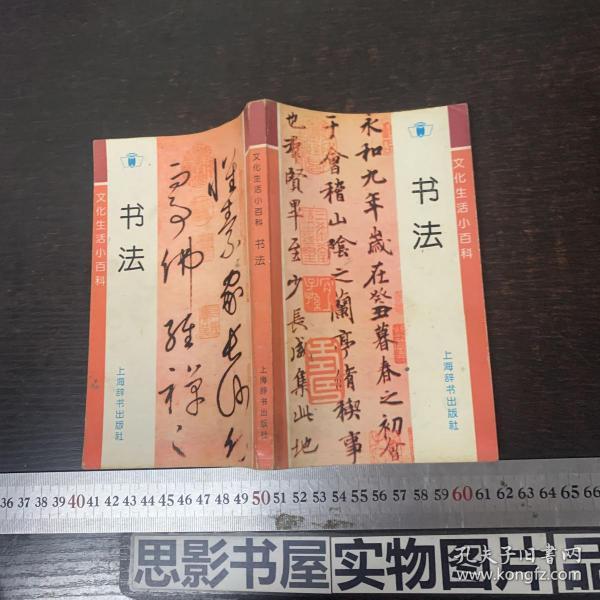 文化生活小百科
书法
上海辞书出版社
懷素家長沙幼
事佛經禪之
文化生活小百科 书法 上海辞书出版社
永和九年歲在癸丑暮春之初會
于會稽山陰之蘭亭脩稧事
也羣賢畢至少長咸集此地
文化生活小百科
书法
上海辞书出版社
36 37 38 39 40 41 42 43 44 45 46 47 48 49 50 51 52 53 54 55 56 57 58 59 60 61 62 63 64 65 66
思影书屋实物图片品
孔夫子旧書网
www.kongfz.com